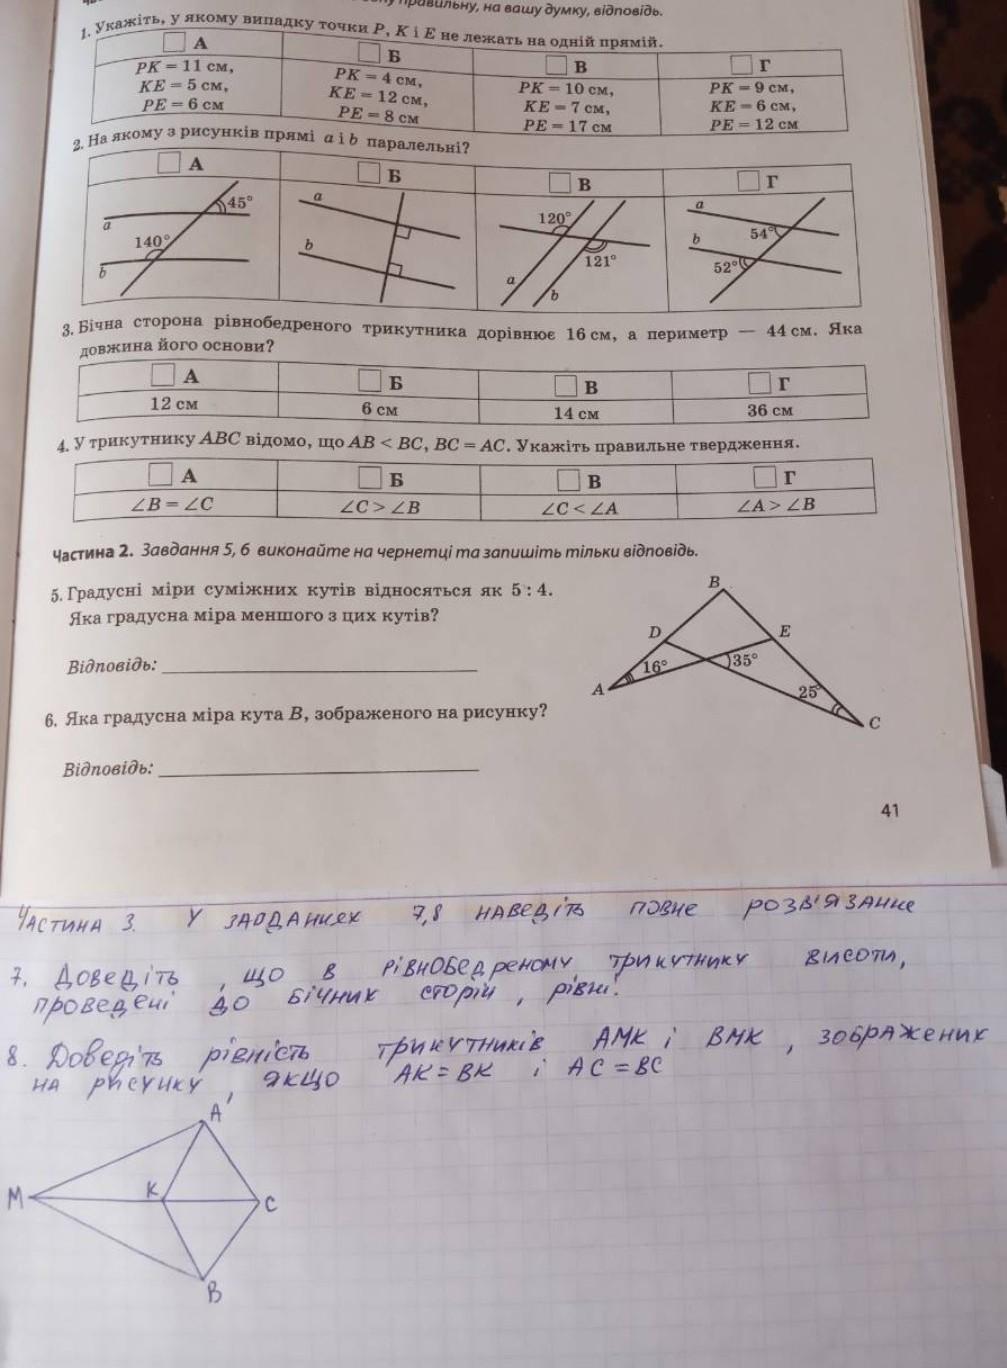 правильну, на вашу думку, відповідь.
1. Укажіть, у якому випадку точки P, K і E не лежать на одній прямій.
А Б В Г
PK = 11 см, PK = 4 см, PK = 10 см, PK = 9 см,
KE = 5 см, KE = 12 см, KE = 7 см, KE = 6 см,
PE = 6 см PE = 8 см PE = 17 см PE = 12 см
2. На якому з рисунків прямі a і b паралельні?
А Б В Г
a 45° 140° b
a b
120° 121° a b
a 54° b 52°
3. Бічна сторона рівнобедреного трикутника дорівнює 16 см, а периметр — 44 см. Яка
довжина його основи?
А Б В Г
12 см 6 см 14 см 36 см
4. У трикутнику ABC відомо, що AB < BC, BC = AC. Укажіть правильне твердження.
А Б В Г
∠B = ∠C ∠C > ∠B ∠C < ∠A ∠A > ∠B
Частина 2. Завдання 5, 6 виконайте на чернетці та запишіть тільки відповідь.
5. Градусні міри суміжних кутів відносяться як 5 : 4.
Яка градусна міра меншого з цих кутів?
Відповідь:
6. Яка градусна міра кута B, зображеного на рисунку?
Відповідь:
B
D E
16° 35°
A 25°
C
41
Частина 3. У завданнях 7,8 наведіть повне розв'язання
7. Доведіть, що в рівнобедреному трикутнику висоти,
проведені до бічних сторін, рівні.
8. Доведіть рівність трикутників AMK і BMK, зображених
на рисунку, якщо AK = BK і AC = BC
A
M K C
B